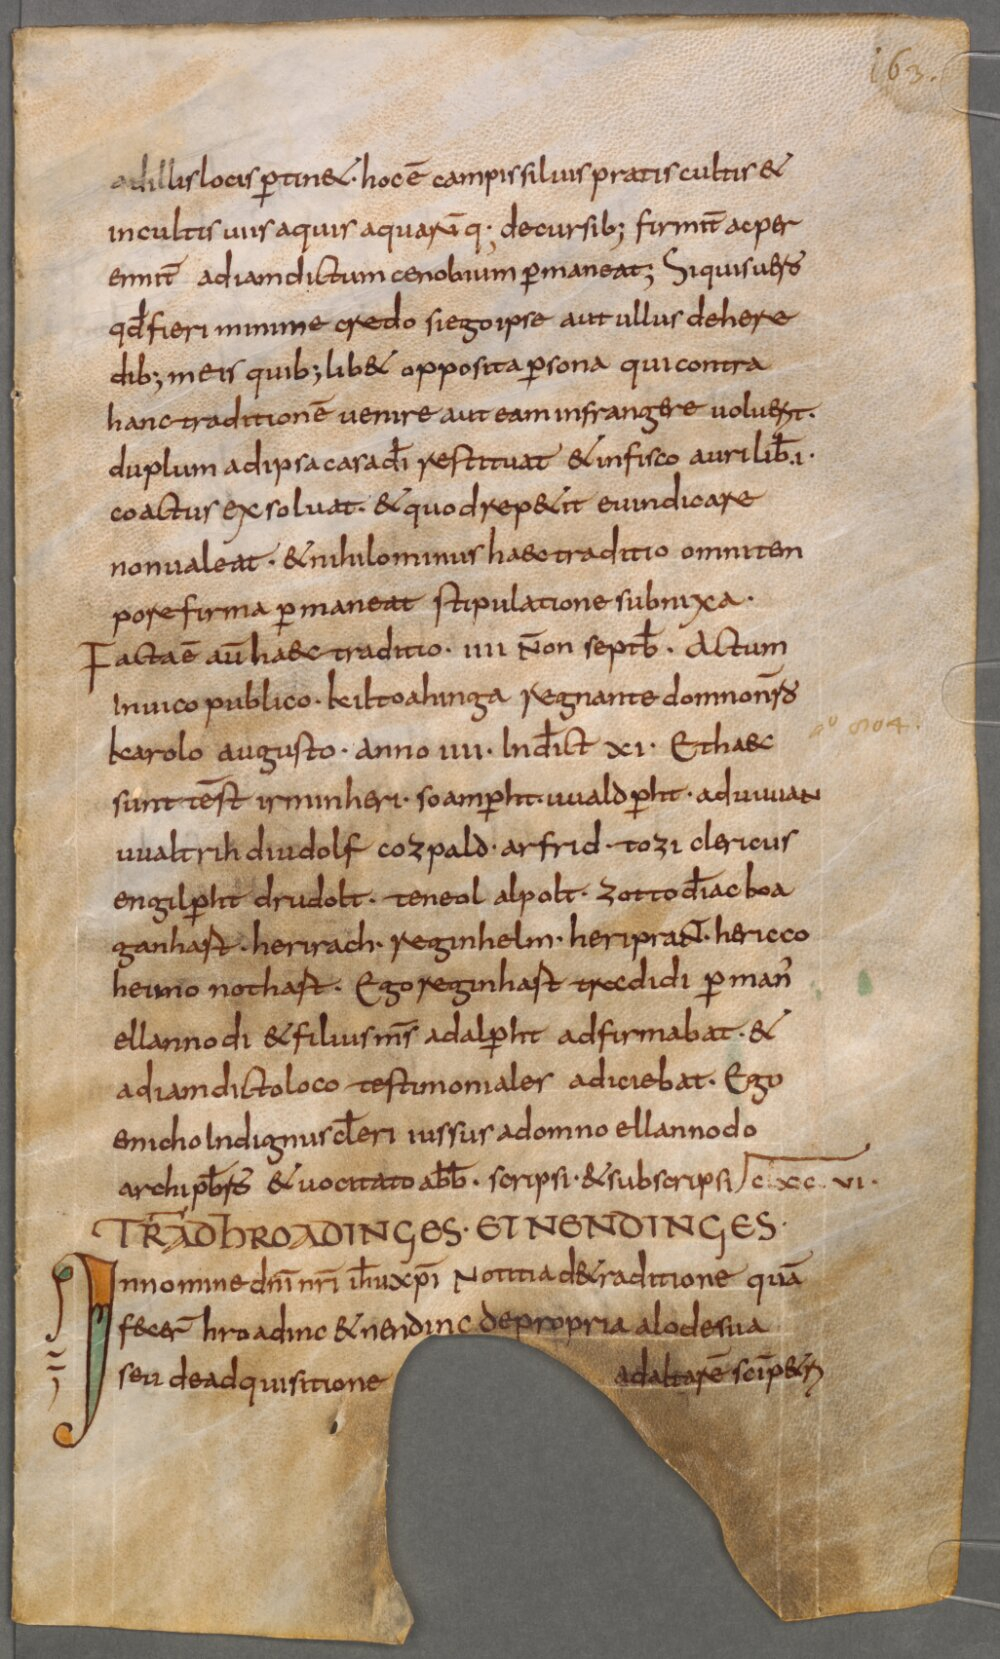 163.
adillis locis ꝑtin&. hoc ē campis siluis pratis cultis &
incultis uiis aquis aquarū q; decursib; firmit̄ ac per
ennit̄ ad iam dictum cenobium ꝑmaneat; Si quis uero
qđ fieri minime credo si ego ipse aut ullus de here
dib; meis quib; lib& opposita ꝑsona qui contra
hanc traditionē uenire aut eam infrangere uoluerit.
duplum ad ipsa casa dī restituat & in fisco auri liƀ .i.
coactus exsoluat. & quod rep&it euindicare
non ualeat. & nihilominus haec traditio omni tem
pore firma ꝑmaneat stipulatione subnixa.
Facta ē aū haec traditio. iiii Non septƀ. Actum
In uico publico. kiltoahinga regnante domno nr̄o
karolo augusto. anno iiii. Indict xi. Et haec
a° 804.
sunt test̄ irminheri. soamꝑht. uualdꝑht. adiuuan
uualtrih diudolf cozpald. arfrid. tozi clericus
engilꝑht drudolt. teneol alpolt. zotto diac boa
ganhast. herirach. reginhelm. heriprat. hericco
heimo nothast. Ego reginhast trecdidi ꝑ man̄
ellannodi & filius ms̄ adalꝑht adfirmabat. &
ad iam dicto loco testimoniales adiciebat. Ego
enicho Indignus cl̄eri iussus a domno ellannodo
archip̄bro & uocitato abƀ. scripsi. & subscripsi
cxcvi.
TRAD HROADINGES. ET NENDINGES.
In nomine dn̄i nr̄i ih̄u xp̄i Notitia de traditione quā
fecer̄ hroadinc & nendinc de propria alode sua
seu de adquisitione ad altarē sc̄i p&ri